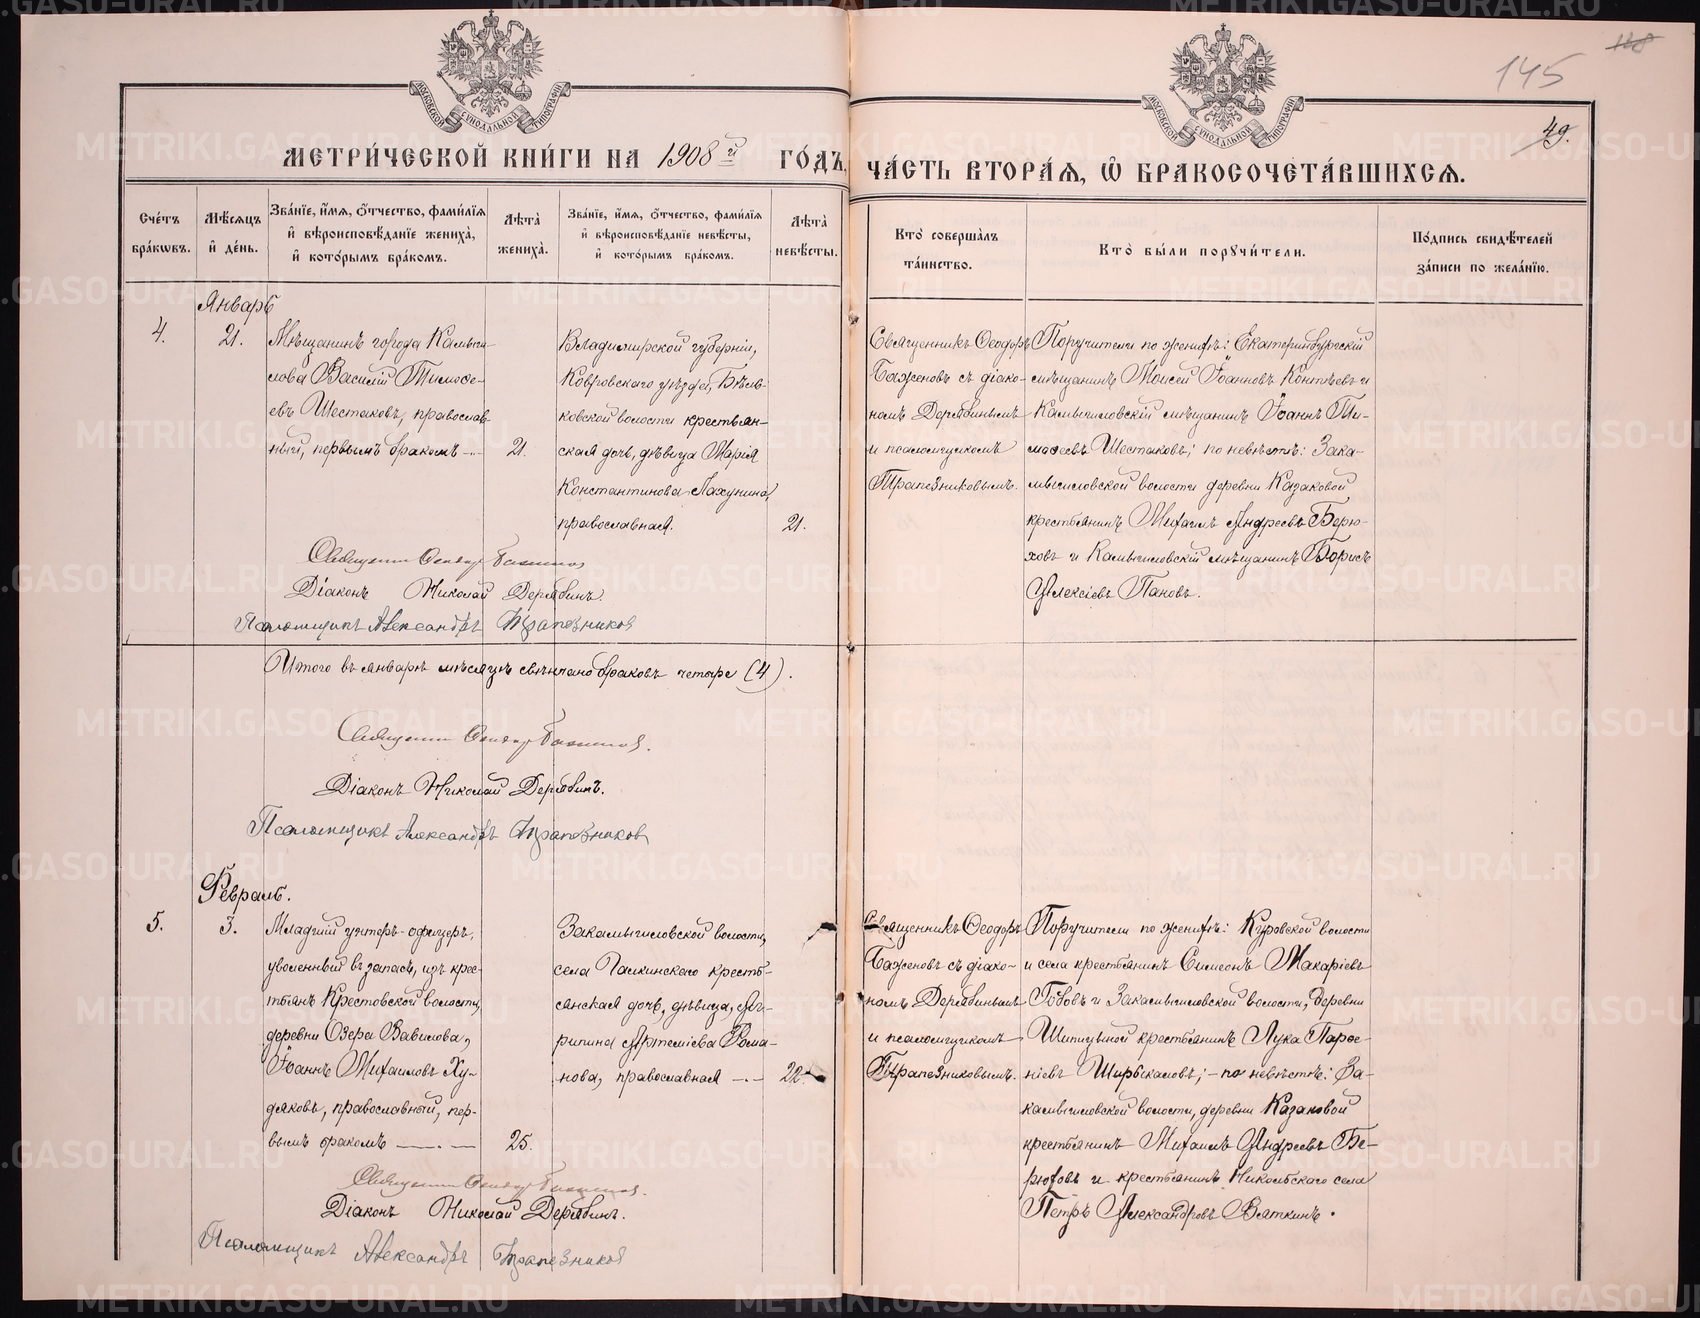 145
49.
МОСКОВСКОЙ СѴНОДАЛЬНОЙ ТИПОГРАФІИ
МОСКОВСКОЙ СѴНОДАЛЬНОЙ ТИПОГРАФІИ
МЕТРИ́ЧЕСКОЙ КНИ́ГИ НА 1908 й ГО́ДЪ,
ЧА́СТЬ ВТОРА́Я, Ѡ БРАКОСОЧЕТА́ВШИХСЯ.
Сче́тъ бра́кѡвъ.
Мѣ́сяцъ и҆ де́нь.
Зва́нїе, и҆́мя, ѻ҆́тчество, фами́лїя и҆ вѣроисповѣ́данїе жениха̀, и҆ кото́рымъ бра́комъ.
Лѣ́та̀ жениха̀.
Зва́нїе, и҆́мя, ѻ҆́тчество, фами́лїя и҆ вѣроисповѣ́данїе невѣ́сты, и҆ кото́рымъ бра́комъ.
Лѣ́та̀ невѣ́сты.
Кто̀ соверша́лъ та́инство.
Кто̀ бы́ли порꙋчи́тели.
По́дпись свидѣ́телей за́писи по жела́нїю.
Январь
4.
21.
Мѣщанинъ города Камыш-
лова Василій Тимоѳе-
евъ Шестаковъ, православ-
ный, первымъ бракомъ —.
21.
Владимірской губерніи,
Ковровскаго уѣзда, Бѣль-
ковской волости крестьян-
ская дочь, дѣвица Марія
Константинова Лахунина,
православная.
21.
Священникъ Ѳеодоръ
Баженовъ съ діако-
номъ Дерябинымъ
и псаломщикомъ
Трапезниковымъ.
Поручители по женихѣ: Екатеринбургскій
мѣщанинъ Моисей Іоанновъ Контѣевъ и
Камышловскій мѣщанинъ Іоаннъ Ти-
моѳеевъ Шестаковъ; по невѣстѣ: Зака-
мышловской волости деревни Казаковой
крестьянинъ Михаилъ Андреевъ Берю-
ховъ и Камышловскій мѣщанинъ Борисъ
Алексіевъ Пановъ.
Священникъ Ѳеодоръ Баженовъ
Діаконъ Николай Дерябинъ.
Псаломщикъ Александръ Трапезниковъ
Итого въ январѣ мѣсяцѣ свѣнчано браковъ четыре (4).
Священникъ Ѳеодоръ Баженовъ.
Діаконъ Николай Дерябинъ.
Псаломщикъ Александръ Трапезниковъ
Февраль.
5.
3.
Младшій унтеръ-офицеръ,
уволенный въ запасъ, изъ крес-
тьянъ Крестовской волости,
деревни Озера Вавилова,
Іоаннъ Михаиловъ Ху-
дяковъ, православный, пер-
вымъ бракомъ —.—
25.
Закамышловской волости,
села Галкинскаго кресть-
янская дочь, дѣвица, Аг-
рипина Артеміева Рома-
нова, православная —.—
22.
Священникъ Ѳеодоръ
Баженовъ съ діако-
номъ Дерябинымъ
и псаломщикомъ
Трапезниковымъ.
Поручители по женихѣ: Куровской волости
и села крестьянинъ Симеонъ Макаріевъ
Говъ и Закамышловской волости, деревни
Шипицыной крестьянинъ Лука Парѳе-
ніевъ Ширыкаловъ; – по невѣстѣ: За-
камышловской волости, деревни Казаковой
крестьянинъ Михаилъ Андреевъ Бе-
рюховъ и крестьянинъ Никольскаго села
Петръ Александровъ Вяткинъ.
Священникъ Ѳеодоръ Баженовъ.
Діаконъ Николай Дерябинъ.
Псаломщикъ Александръ Трапезниковъ
METRIKI.GASO-URAL.RU